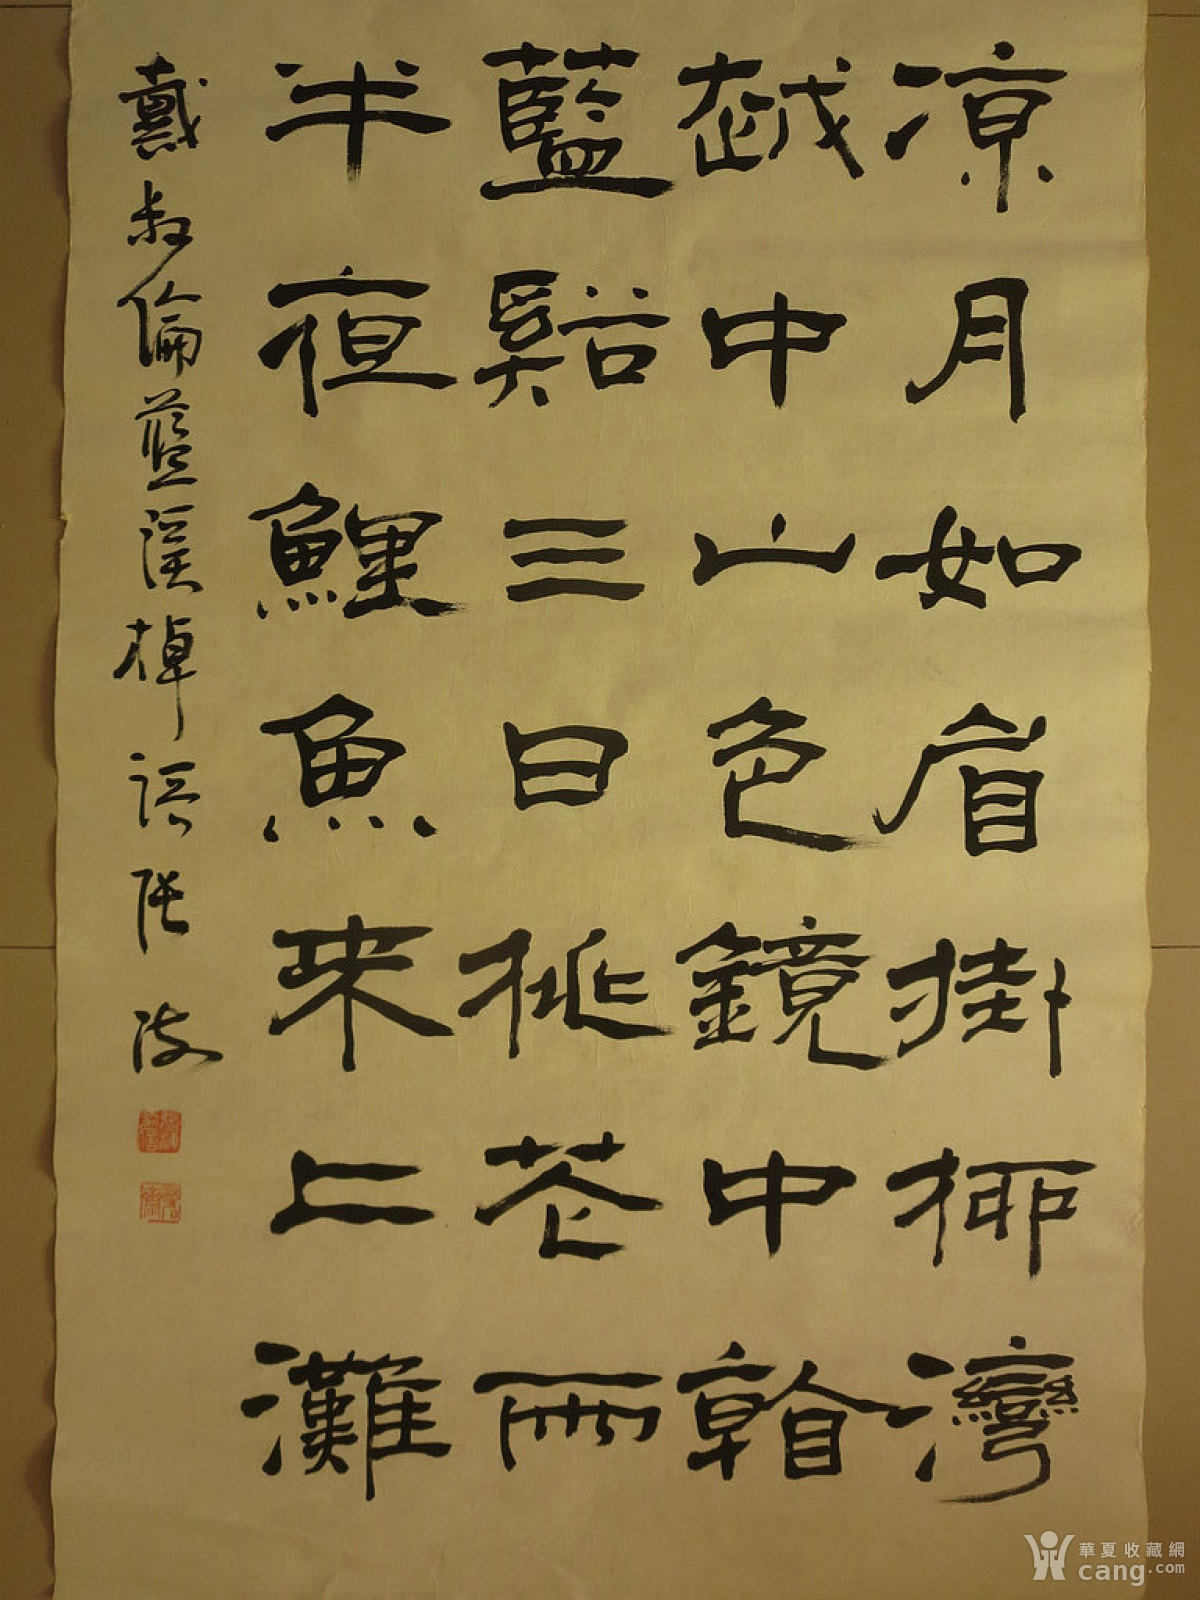 凉月如眉掛柳灣
越中山色鏡中看
藍谿三日桃花雨
半夜鯉魚來上灘
戴叔倫藍溪棹謌張海
華夏收藏網
cang.com